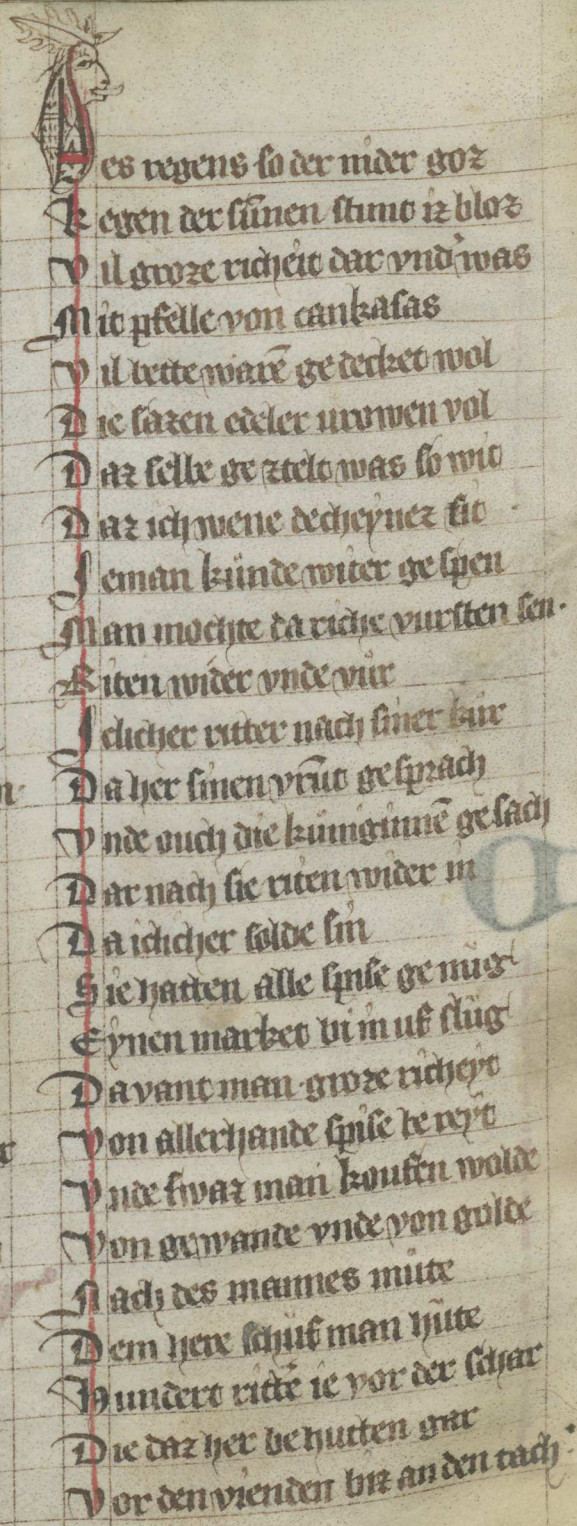 Des regens so der nider goz
Kegen der sūnen stunt iz bloz
Vil groze richeit dar vnd' was
Mit pfelle von caukasas
Vil bette warē ge decket wol
Die sazen edeler urowen vol
Daz selbe ge ztelt was so wit
Daz ich wene decheynez sit
Jeman kùnde witer ge spen
Man mochte da riche vursten sen.
Riten wider vnde vùr
Jclicher ritter nach siner kùr
Da her sinen vrūt ge sprach
Vnde ouch die kùniginnē ge sach
Dar nach sie riten wider in
Da iclicher solde sin
Sie hatten alle spise ge nùg
Eynen market bi in uf slùg
Da vant man groze richeyt
Von allerhande spise be reyt
Vnde swaz man koufen wolde
Von gewande vnde von golde
Nach des mannes mùte
Dem here schuf man hùte
Hundert rittē ie vor der schar
Die daz her be hutten gar
Vor den vienden biz an den tach